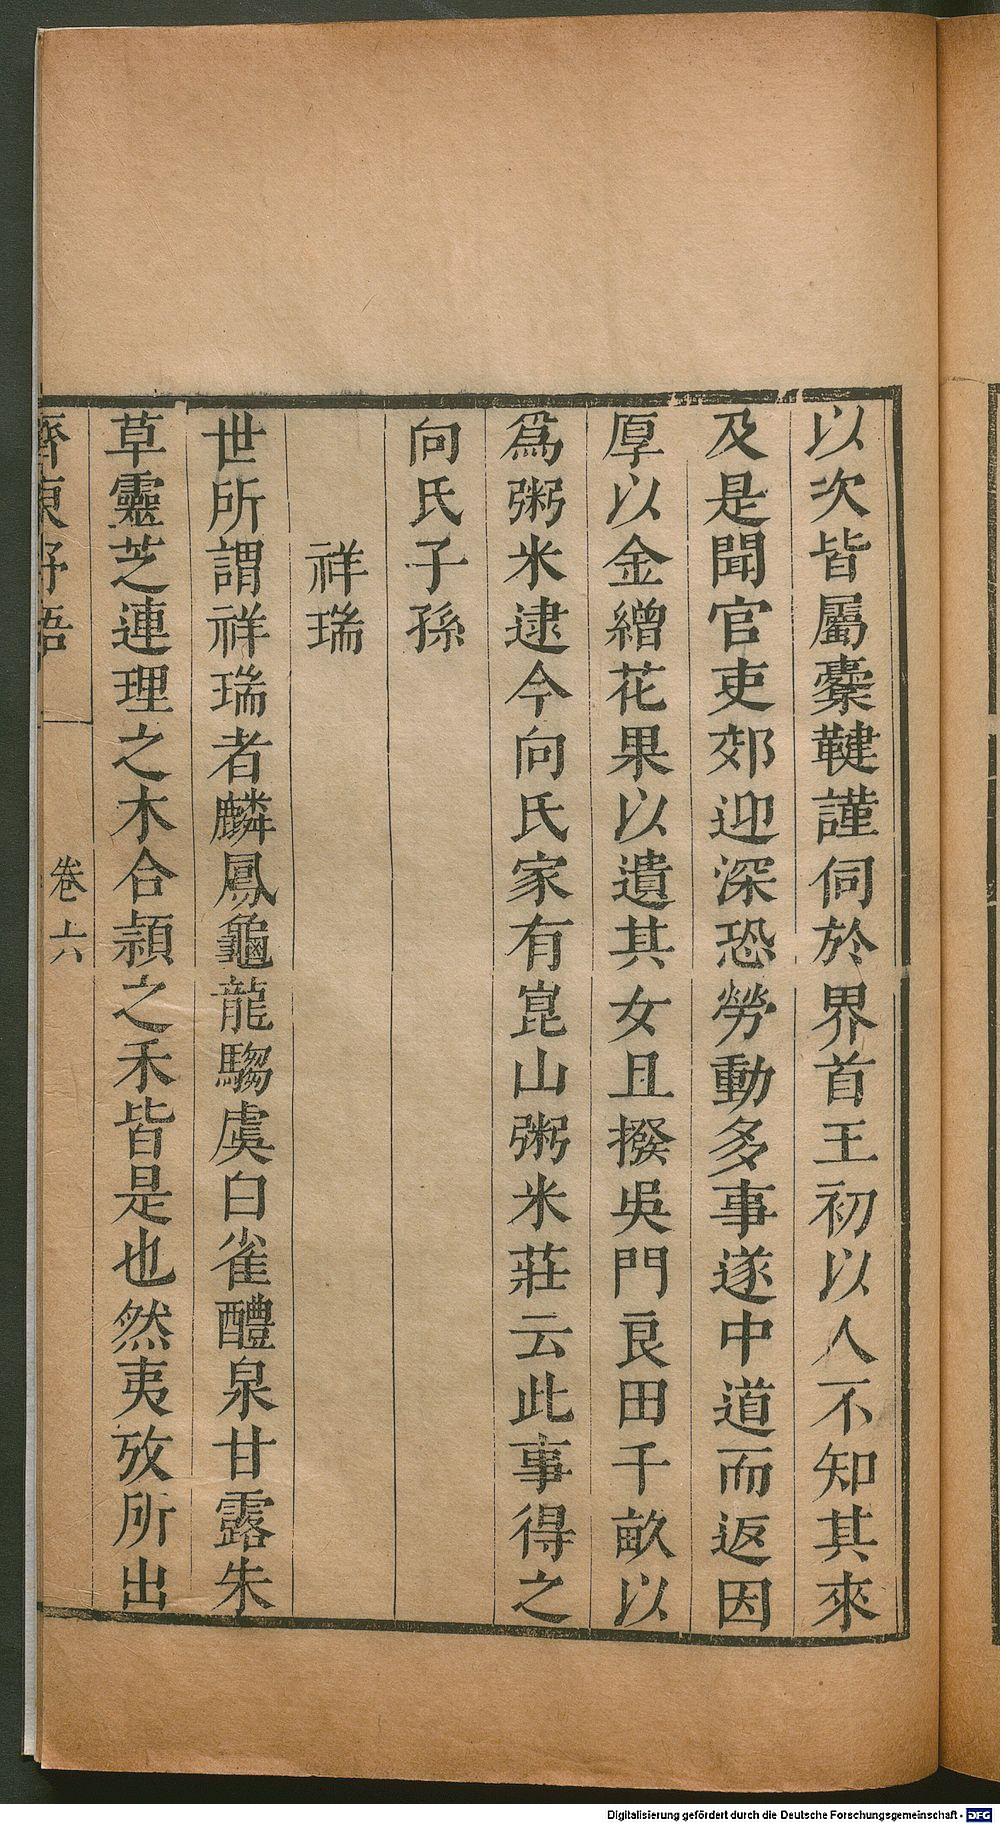 以次皆屬櫜鞬謹伺於界首王初以人不知其來
及是聞官吏郊迎深恐勞動多事遂中道而返因
厚以金繒花果以遺其女且撥吳門良田千畝以
爲粥米逮今向氏家有崑山粥米莊云此事得之
向氏子孫
祥瑞
世所謂祥瑞者麟鳳龜龍騶虞白雀醴泉甘露朱
草靈芝連理之木合頴之禾皆是也然夷攷所出
齊東野語
卷六
Digitalisierung gefördert durch die Deutsche Forschungsgemeinschaft - DFG